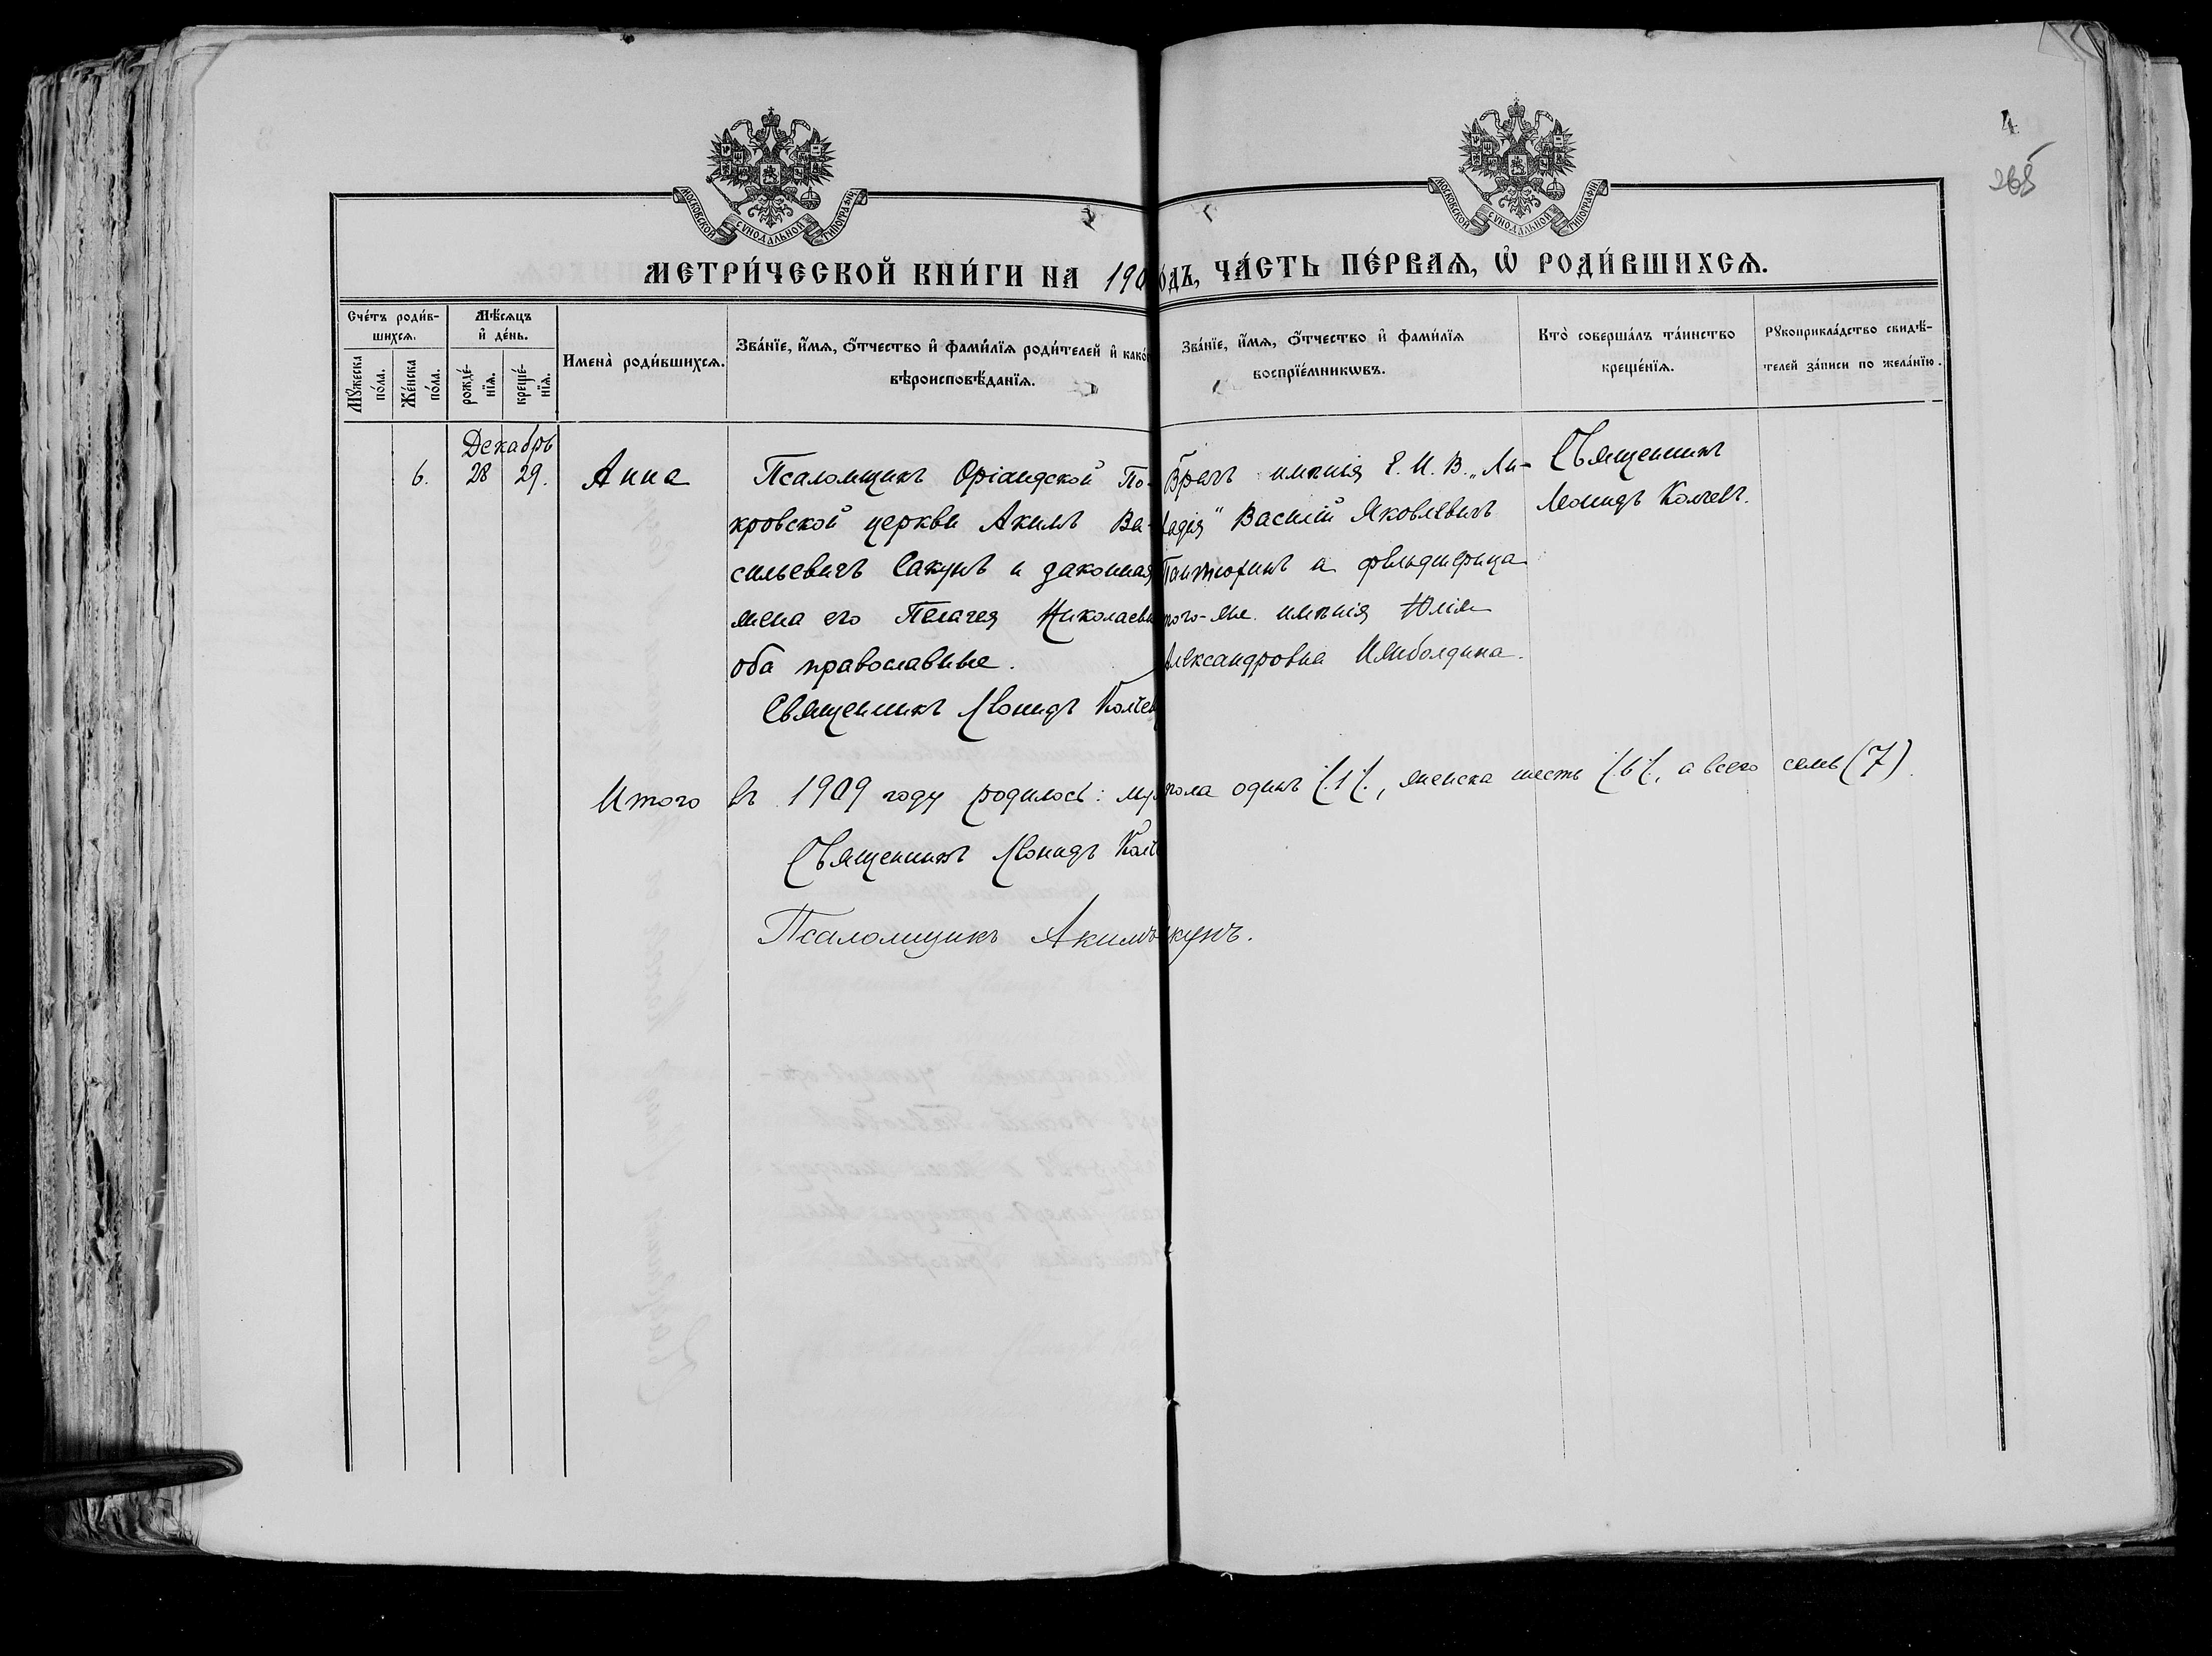 4
265
МОСКОВСКОЙ СУНОДАЛЬНОЙ ТИПОГРАФІИ
МОСКОВСКОЙ СУНОДАЛЬНОЙ ТИПОГРАФІИ
МЕТРИ́ЧЕСКОЙ КНИ́ГИ НА 190
о́дъ, ЧА́СТЬ ПЕ́РВАѦ, Ѡ҆ РОДИ́ВШИХСѦ.
Сче́тъ роди́в-
шихсѧ.
Мѹ́жеска по́ла.
Же́нска по́ла.
Мѣ́сѧцъ
и҆ де́нь.
рожде́-
нїѧ.
креще́-
нїѧ.
Имена̀ роди́вшихсѧ.
Зва́нїе, и҆́мѧ, ѻ҆́тчество и҆ фами́лїѧ роди́телей и҆ како́
вѣроисповѣ́данїѧ.
Зва́нїе, и҆́мѧ, ѻ҆́тчество и҆ фами́лїѧ
воспрїе́мникѡвъ.
Кто̀ соверша́лъ та́инство
креще́нїѧ.
Рѹкоприкла́дство свидѣ́-
телей за́писи по жела́нїю.
Декабрь
6. 28 29. Анна
Псаломщикъ Оріандской По-
кровской церкви Акимъ Ва-
сильевичъ Сакунъ и законная
жена его Пелагея Николаевн
оба православные.
Священникъ Леонидъ Колчев
Врачъ имѣнія Е. И. В. „Ли-
вадія" Василій Яковлевичъ
а фельдшерица
того-же имѣнія Юлія
Александровна
Священникъ
Леонидъ Колчевъ.
Итого въ 1909 году родилось: му пола одинъ /.1/., женска шесть /.6/., а всего семь (7).
Священникъ Леонидъ Колч
Псаломщикъ Акимъ кунъ.